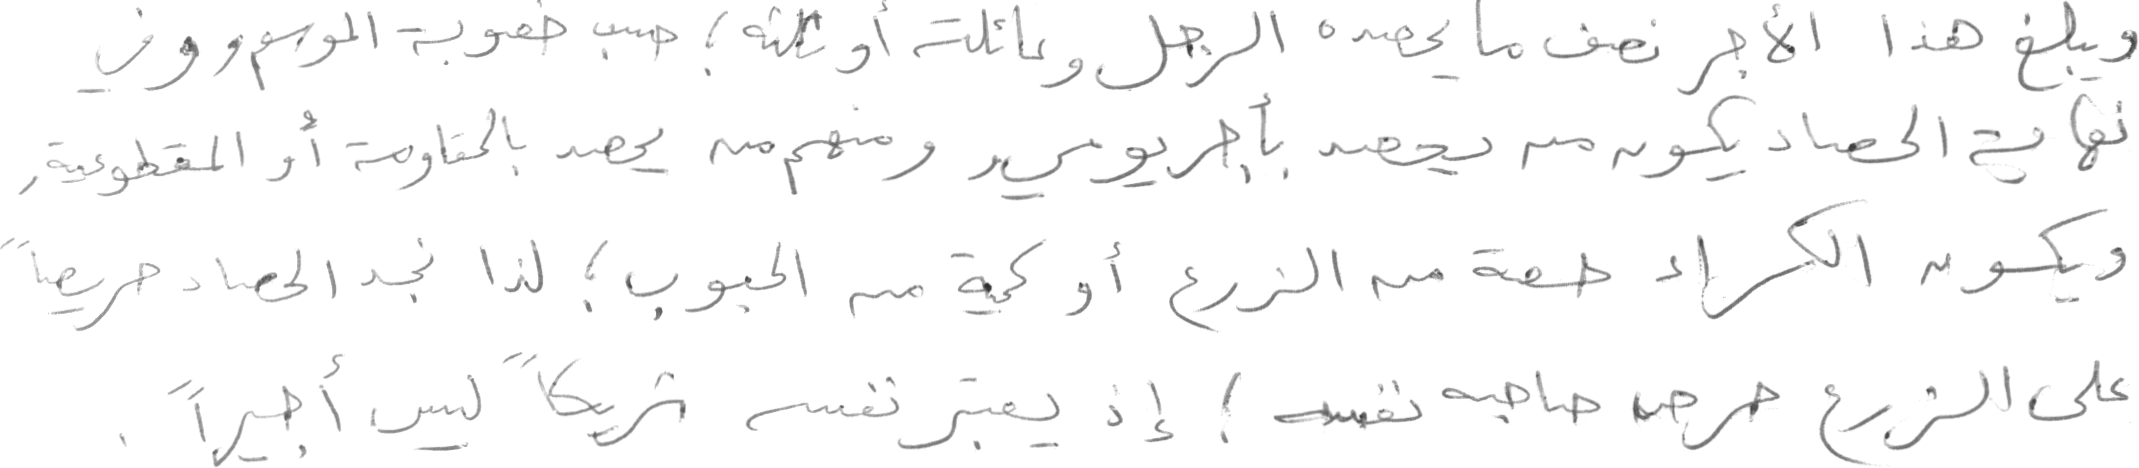 ويبلغ هذا الأجر نصف ما يحصده الرجل وعائلته أو ثلثه؛ حسب خصوبة الموسم، وفي
نهاية الحصاد يكون من يحصد بأجر يومي، ومنهم من يحصد بالمقاومة أو المقطوعية،
ويكون الكراء حصة من الزرع أو كمية من الحبوب؛ لذا نجد الحصاد حريصاً
على الزرع حرص صاحبه نفسه؛ إذ يعتبر نفسه شريكاً ليس أجيراً.